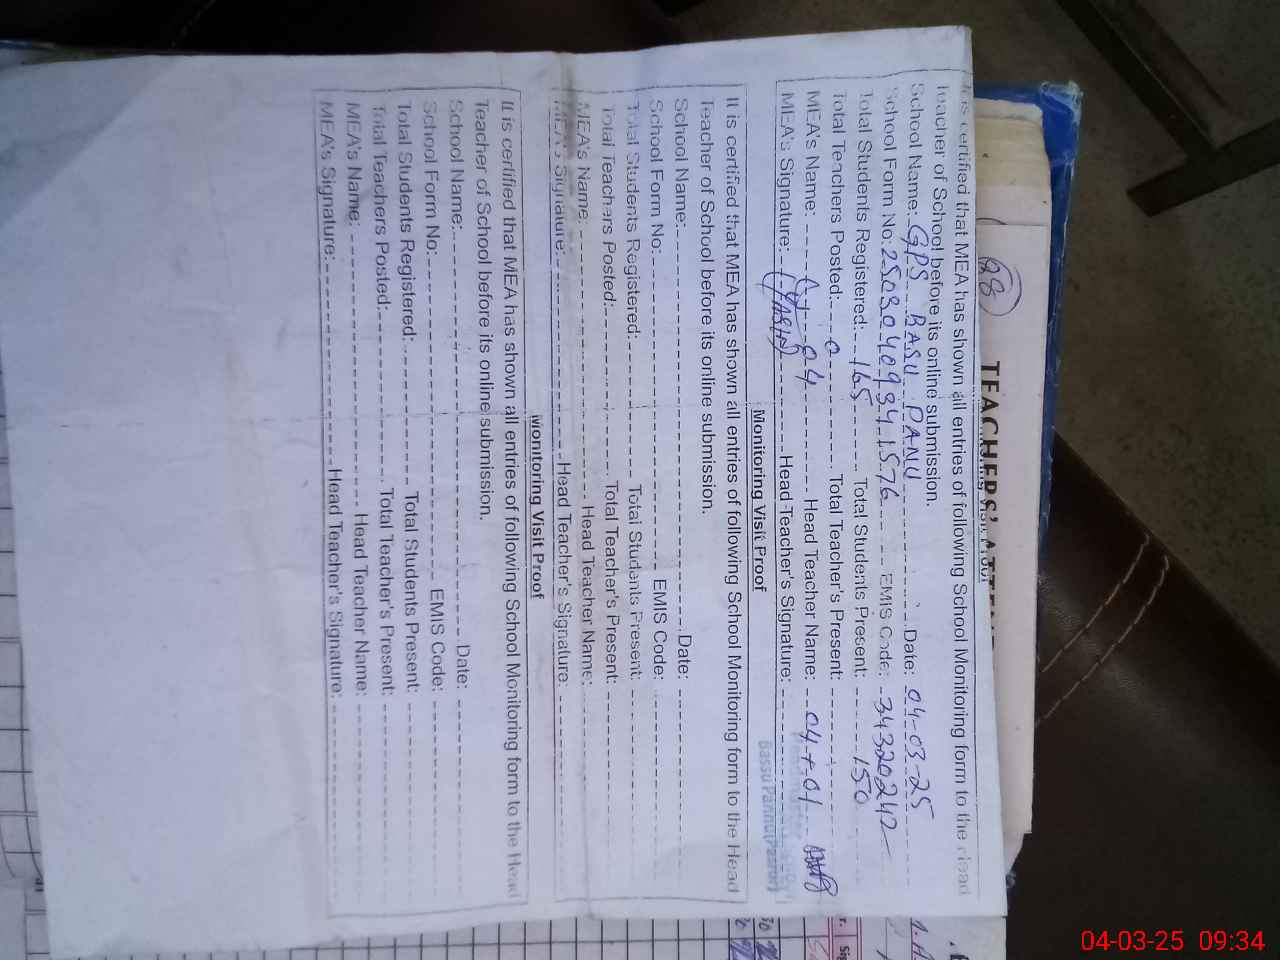 It is certified that MEA has shown all entries of following School Monitoring form to the Head
Teacher of School before its online submission.
School Name: GPS BASU PANU Date: 04-03-25
School Form No: 25030409341576 EMIS Code: 34320242
Total Students Registered: 165 Total Students Present: 150
Total Teachers Posted: 0 Total Teacher's Present:
MEA's Name: 04 Head Teacher Name: 04+01
MEA's Signature: (YASIN) Head Teacher's Signature:
Bassu Pannu(Pasrur)
Monitoring Visit Proof
It is certified that MEA has shown all entries of following School Monitoring form to the Head
Teacher of School before its online submission.
School Name: Date:
School Form No: EMIS Code:
Total Students Registered: Total Students Present:
Total Teachers Posted: Total Teacher's Present:
MEA's Name: Head Teacher Name:
MEA's Signature: Head Teacher's Signature:
Monitoring Visit Proof
It is certified that MEA has shown all entries of following School Monitoring form to the Head
Teacher of School before its online submission.
School Name: Date:
School Form No: EMIS Code:
Total Students Registered: Total Students Present:
Total Teachers Posted: Total Teacher's Present:
MEA's Name: Head Teacher Name:
MEA's Signature: Head Teacher's Signature:
88
TEACHERS'
04-03-25 09:34